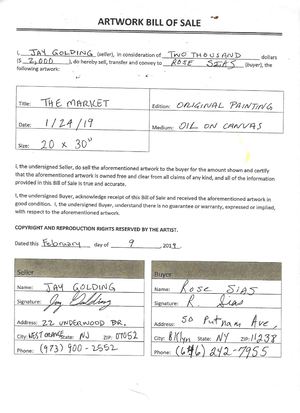 ARTWORK BILL OF SALE
I, JAY GOLDING (seller), in consideration of TWO THOUSAND dollars
($ 2,000 ), do hereby sell, transfer and convey to ROSE SIAS (buyer), the
following artwork:
Title: THE MARKET
Edition: ORIGINAL PAINTING
Date: 1/24/19
Medium: OIL ON CANVAS
Size: 20 x 30"
I, the undersigned Seller, do sell the aforementioned artwork to the buyer for the amount shown and certify
that the aforementioned artwork is owned free and clear from all claims of any kind, and all of the information
provided in this Bill of Sale is true and accurate.
I, the undersigned Buyer, acknowledge receipt of this Bill of Sale and received the aforementioned artwork in
good condition. I, the undersigned Buyer, understand there is no guarantee or warranty, expressed or implied,
with respect to the aforementioned artwork.
COPYRIGHT AND REPRODUCTION RIGHTS RESERVED BY THE ARTIST.
Dated this February day of 9 2019
Seller
Name: JAY GOLDING
Signature: Jay Golding
Address: 22 UNDERWOOD DR.
City: WEST ORANGE State: NJ ZIP: 07052
Phone: (973) 900-2552
Buyer
Name: Rose SIAS
Signature: R. Sias
Address: 50 Putnam Ave,
City: BKlyn State: NY ZIP: 11238
Phone: (646) 242-7955